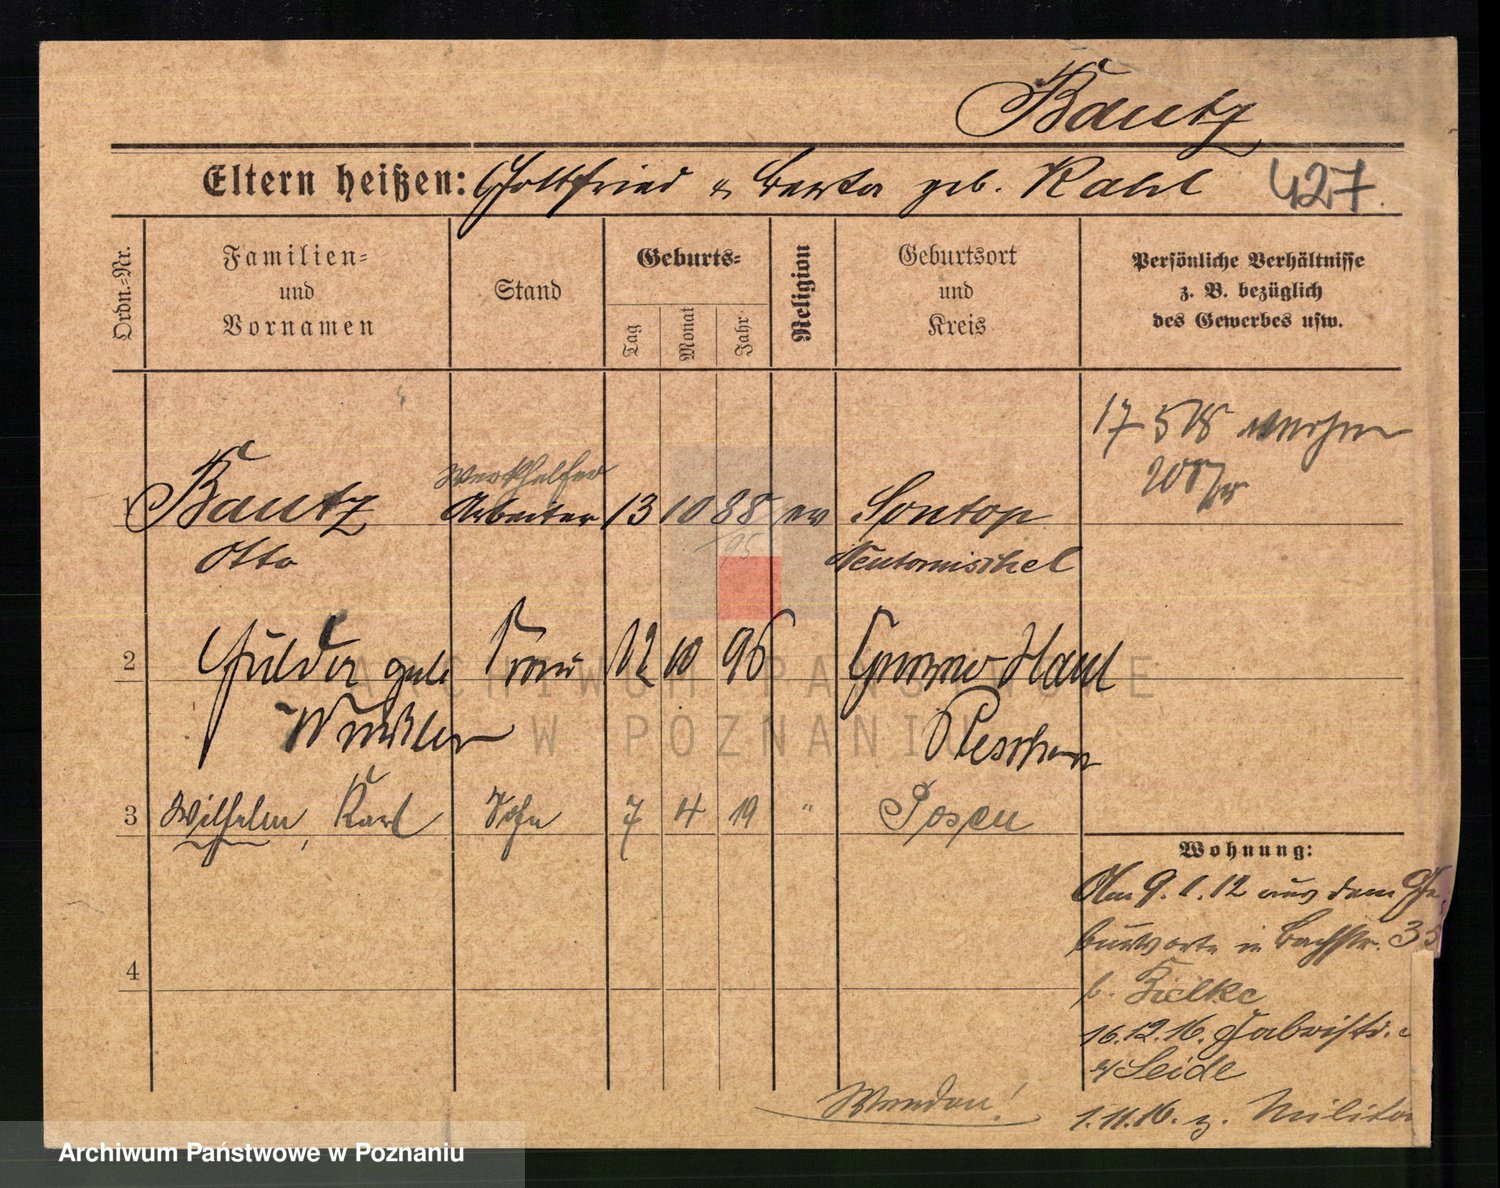 Bautz
Eltern heißen: Gottfried u Berta geb. Kahl 427
Ordn.-Nr.
Familien-
und
Vornamen
Stand
Geburts-
Tag
Monat
Jahr
Religion
Geburtsort
und
Kreis
Persönliche Verhältnisse
z. B. bezüglich
des Gewerbes usw.
17 5 18
Werkhelfer
1 Bautz Arbeiter 13 10 88 ev Sontop
95
Otto Neutomischel
2 Hulda geb Frau 12 10 96
Pleschen
3 Wilhelm, Karl Sohn 7 4 19 " Posen
Wohnung:
Am 9.1.12 aus dem Ge-
burtsorte in Bachstr. 35
b. Kielke
4
16.12.16. Fabrikstr.
b/ Seide
1.11.16. z. Militär
Wenden!
ARCHIWUM PAŃSTWOWE
W POZNANIU
Archiwum Państwowe w Poznaniu